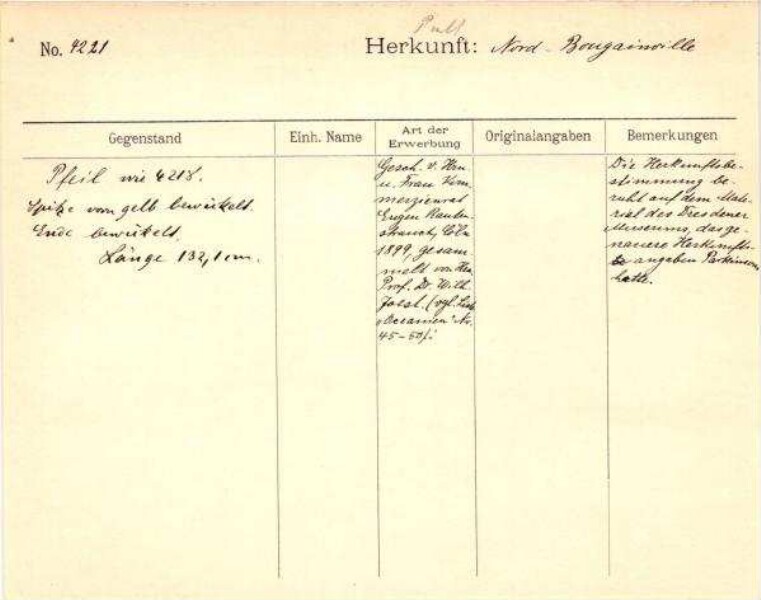 No. 4221
Herkunft: Nord-Bougainville
Gegenstand
Einh. Name
Art der Erwerbung
Originalangaben
Bemerkungen
Pfeil wie 4218.
Spitze vorn gelb bewickelt.
Ende bewickelt.
Länge 132,1 cm.
Gesch. v. Hrn
u. Frau Kom-
merzienrat
Eugen Rauten-
strauch, Cöln
1899, gesam-
melt von Hrn.
Prof. Dr. Wilh.
Joest. (vgl. Liste
"Oceanien" No.
45-50).
Die Herkunftsbe-
stimmung be-
ruht auf dem Mate-
rial des Dresdener
Museums, das ge-
nauere Herkunfts-
angaben Parkinsons
hatte.